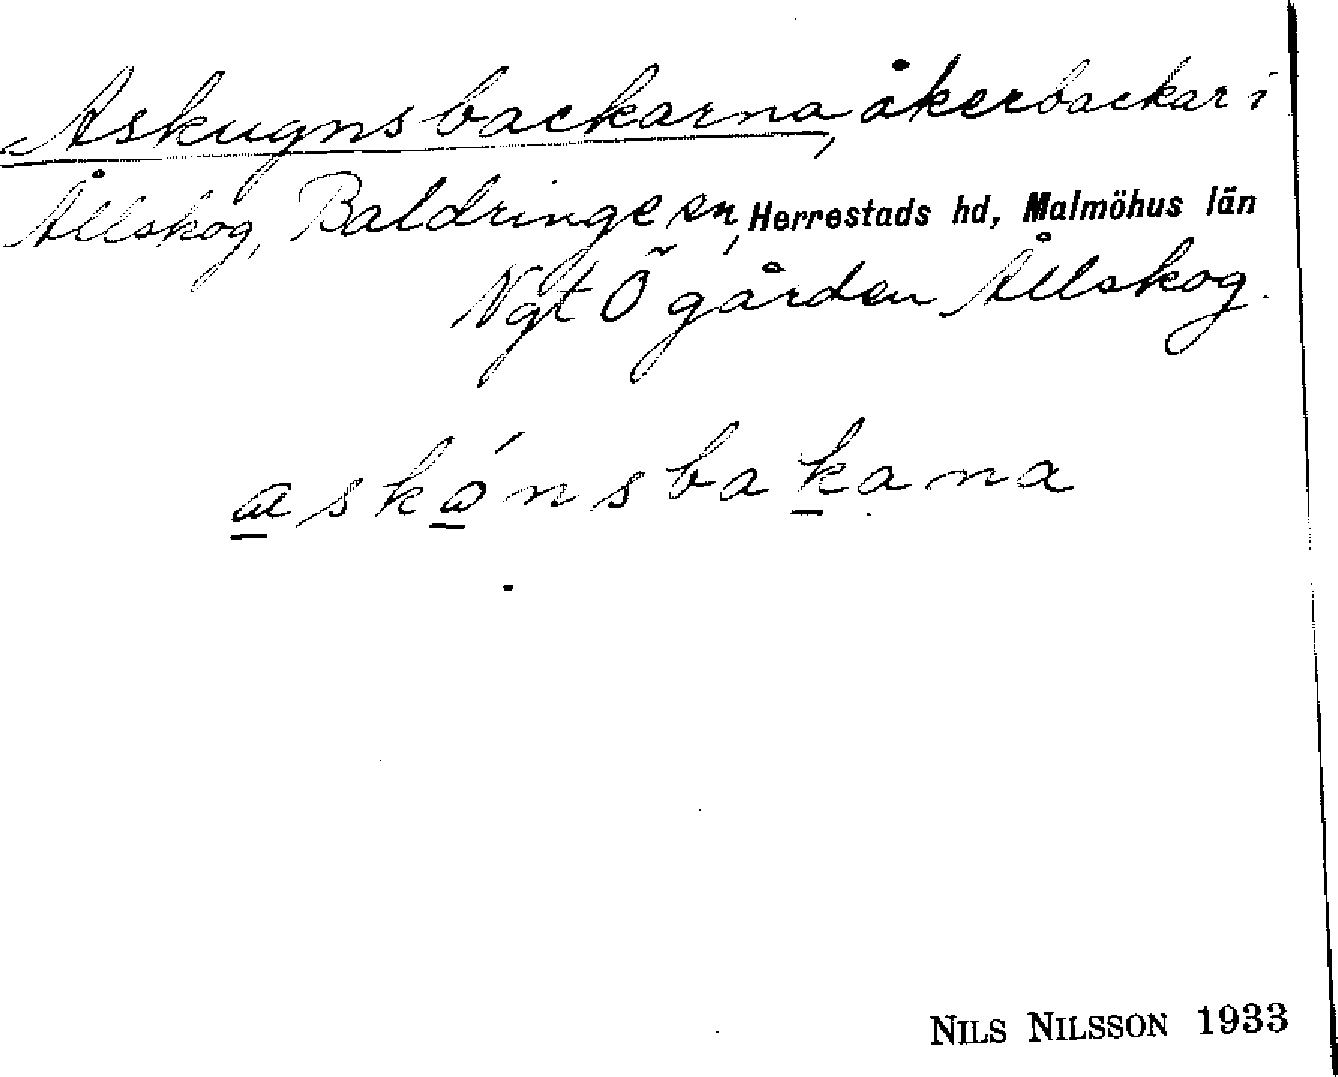 Askugnsbackarna, åkerbackar i
Ållskog, Baldringe sn, Herrestads hd, Malmöhus län
Ngt Ö gården Ållskog.
askǿnsbakana
NILS NILSSON 1933